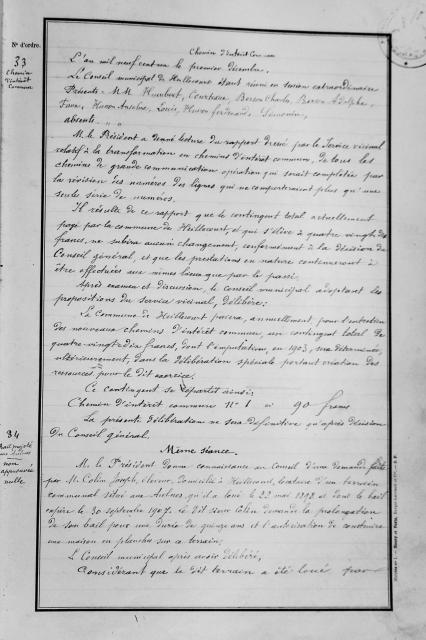 N° d'ordre.
33
Chemin
d'intérêt
Commun
Chemin d'intérêt Commun
L'an mil neuf cent un le premier décembre,
Le Conseil municipal de Heillecourt étant réuni en session extraordinaire
Présents: MM. Humbert, Courtois, Berson Charles, Berson Adolphe,
Favre, Huron Anselme, Louis, Huron Ferdinand,
absents. " "
M. le Président a donné lecture du rapport dressé par le Service vicinal
relatif à la transformation en chemins d'intérêt commun, de tous les
chemins de grande communication opération qui serait complétée par
la révision des numéros des lignes qui ne comporteraient plus qu'une
seule série de numéros.
Il résulte de ce rapport que le contingent total actuellement
payé par la commune de Heillecourt, et qui s'élève à quatre vingt dix
francs, ne subira aucun changement, conformément à la décision du
Conseil général, et que les prestations en nature continueront à
être effectuées aux mêmes lieux que par le passé.
Après examen et discussion, le Conseil municipal adoptant les
propositions du service vicinal, délibère:
La Commune de Heillecourt paiera, annuellement pour l'entretien
des nouveaux chemins d'intérêt commun, un contingent total de
quatre-vingt-dix francs, dont l'imputation, en 1903, sera déterminée,
ultérieurement, dans la délibération spéciale portant création des
ressources pour le dit exercice.
Ce contingent se répartit ainsi:
Chemin d'intérêt commun N° 1 à 90 francs
La présente délibération ne sera définitive qu'après décision
Du Conseil général.
34
non
approuvée
nulle
Même séance.
M. le Président donne connaissance au Conseil d'une demande faite
par M. Colin Joseph, domicilié à Heillecourt, locataire d'un terrain
communal situé aux Aulnes qu'il a loué le 23 mai 1898 et dont le bail
expire le 30 septembre 1907. Le dit sieur Colin demande la prolongation
de son bail pour une durée de quinze ans et l'autorisation de construire
une maison en planches sur ce terrain;
Le Conseil municipal après avoir délibéré,
Considérant que le dit terrain a été loué par